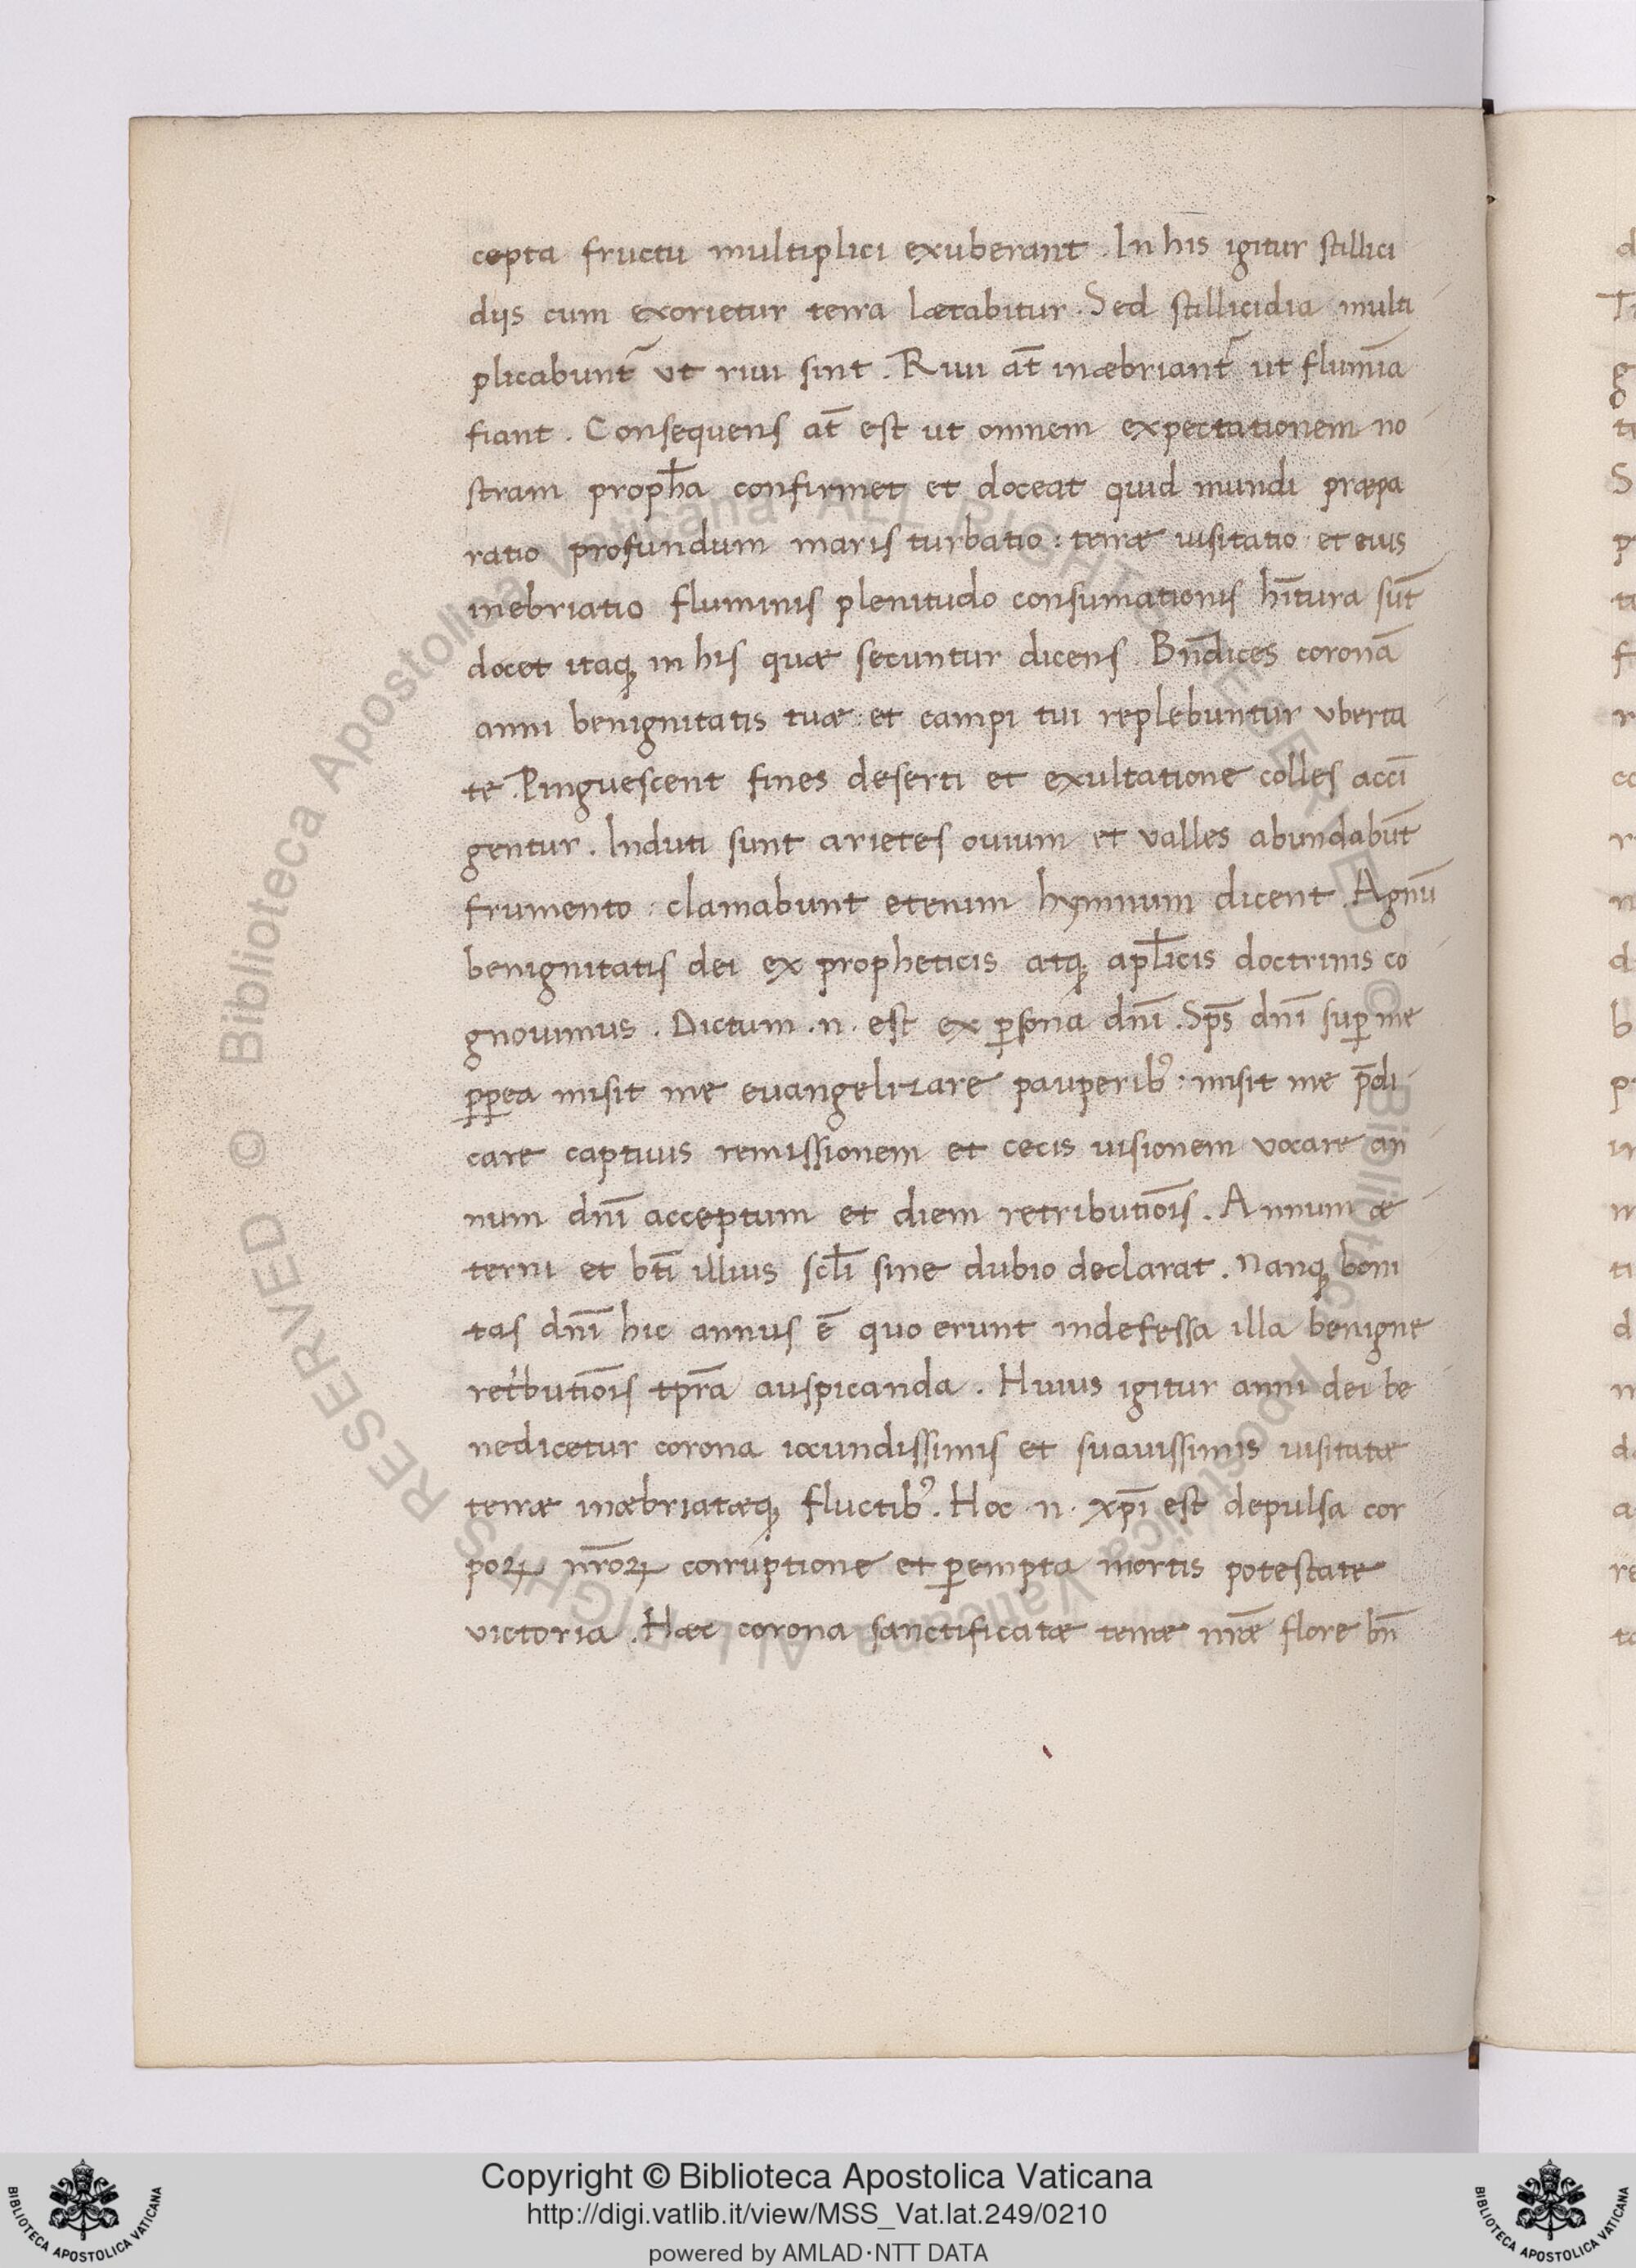 cepta fructu multiplici exuberant. In his igitur stillici
diis cum exorietur terra lætabitur. Sed stillicidia multi
plicabunt᷑ ut riui sint. Riui at̄ inæbriant᷑ ut flumīa
fiant. Consequens at̄ est ut omnem expectationem no
stram proph̄a confirmet et doceat quid mundi præpa
ratio profundum maris turbatio: terræ uisitatio et eius
inebriatio fluminis plenitudo consumationis hītura sūt
docet itaq; in his quæ secuntur dicens. Bn̄dices coronā
anni benignitatis tuæ: et campi tui replebuntur uberta
te. Pinguescent fines deserti et exultatione colles accī
gentur. Induti sunt arietes ouium et valles abundabūt
frumento: clamabunt etenim hymnum dicent. Agnū
benignitatis dei ex propheticis atq; apl̄icis doctrinis co
gnouimus. Dictum .n. est ex ꝑsona dn̄i. Sp̄s dn̄i suꝑ me
ꝓꝑea misit me euangelizare pauperib᷒: misit me p̄di
care captiuis remissionem et cecis uisionem vocare an
num dn̄i acceptum et diem retributiōis. Annum æ
terni et bt̄i illius scl̄i sine dubio declarat. Nanq; boni
tas dn̄i hic annus ē quo erunt indefessa illa benigne
ret̍butiōis tp̄ra auspicanda. Huius igitur anni dei be
nedicetur corona iocundissimis et suauissimis uisitatæ
terræ inæbriatæq; fluctib᷒. Hoc .n. xp̄i est depulsa cor
poꝝ nr̄oꝝ corruptione et ꝑempta mortis potestate
victoria. Hæc corona sanctificatæ terræ nr̄æ flore bn̄
Copyright © Biblioteca Apostolica Vaticana
http://digi.vatlib.it/view/MSS_Vat.lat.249/0210
powered by AMLAD·NTT DATA